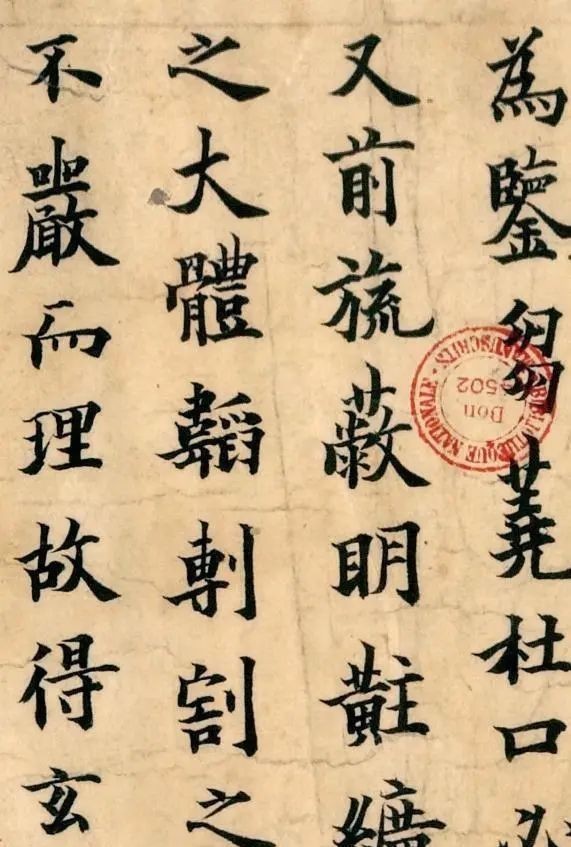 為鑒芻蕘杜口
又前旒蔽明黈纊
之大體韜剸割之
不嚴而理故得玄
BIBLIOTHÈQUE NATIONALE · MANUSCRITS ·
Don